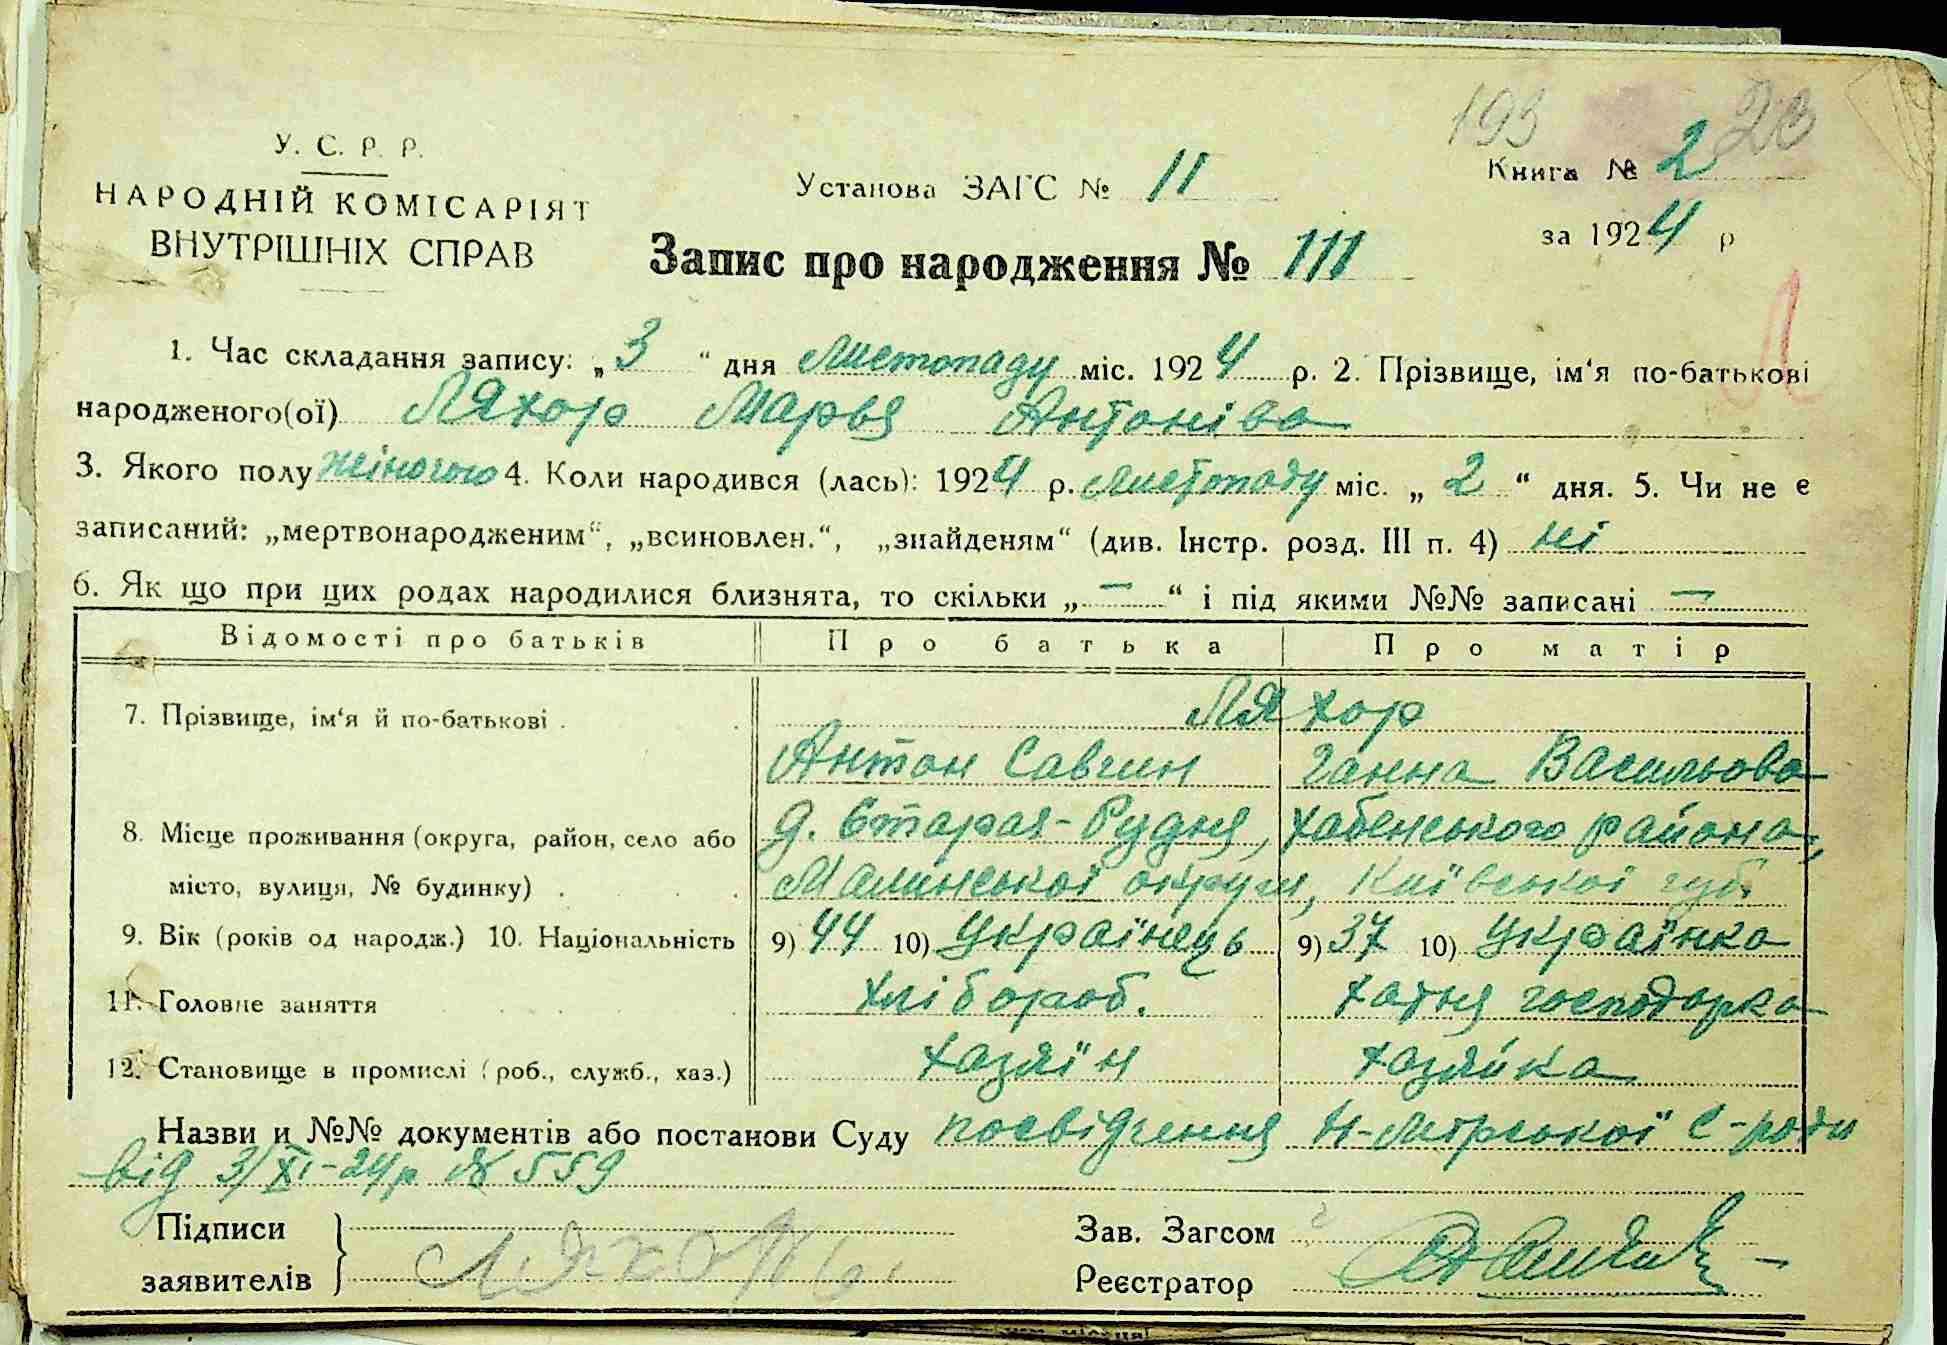 193 23
У. С. Р. Р.
НАРОДНІЙ КОМІСАРІЯТ
ВНУТРІШНІХ СПРАВ
Установа ЗАГС № 11
Книга № 2
за 1924 р
Запис про народження № 111
Л
1. Час складання запису: „3“ дня Листопаду міс. 1924 р. 2. Прізвище, ім‘я по-батькові
народженого(ої) Ляхор Марья Антоніва
3. Якого полу жіночого 4. Коли народився (лась): 1924 р. Листопаду міс. „2“ дня. 5. Чи не є
записаний: „мертвонародженим“, „всиновлен.“, „знайденям“ (див. Інстр. розд. III п. 4) ні
6. Як що при цих родах народилися близнята, то скільки „—“ і під якими №№ записані —
Відомості про батьків Про батька Про матір
7. Прізвище, ім‘я й по-батькові . Ляхор
Антон Савчин Ганна Васильова
8. Місце проживання (округа, район, село або д. Старая-Рудня, Хабенського района,
місто, вулиця, № будинку) . Малинської округи, Київської губ.
9. Вік (років од народж.) 10. Національність 9) 44 10) Українець 9) 37 10) Українка
11. Головне заняття хлібороб. хатня господарка
12. Становище в промислі (роб., служб., хаз.) хазяїн хазяйка
Назви и №№ документів або постанови Суду посвідчення Н-Мірської С-ради
від 3/XI-24р № 559
Підписи
заявителів
Зав. Загсом
Реєстратор